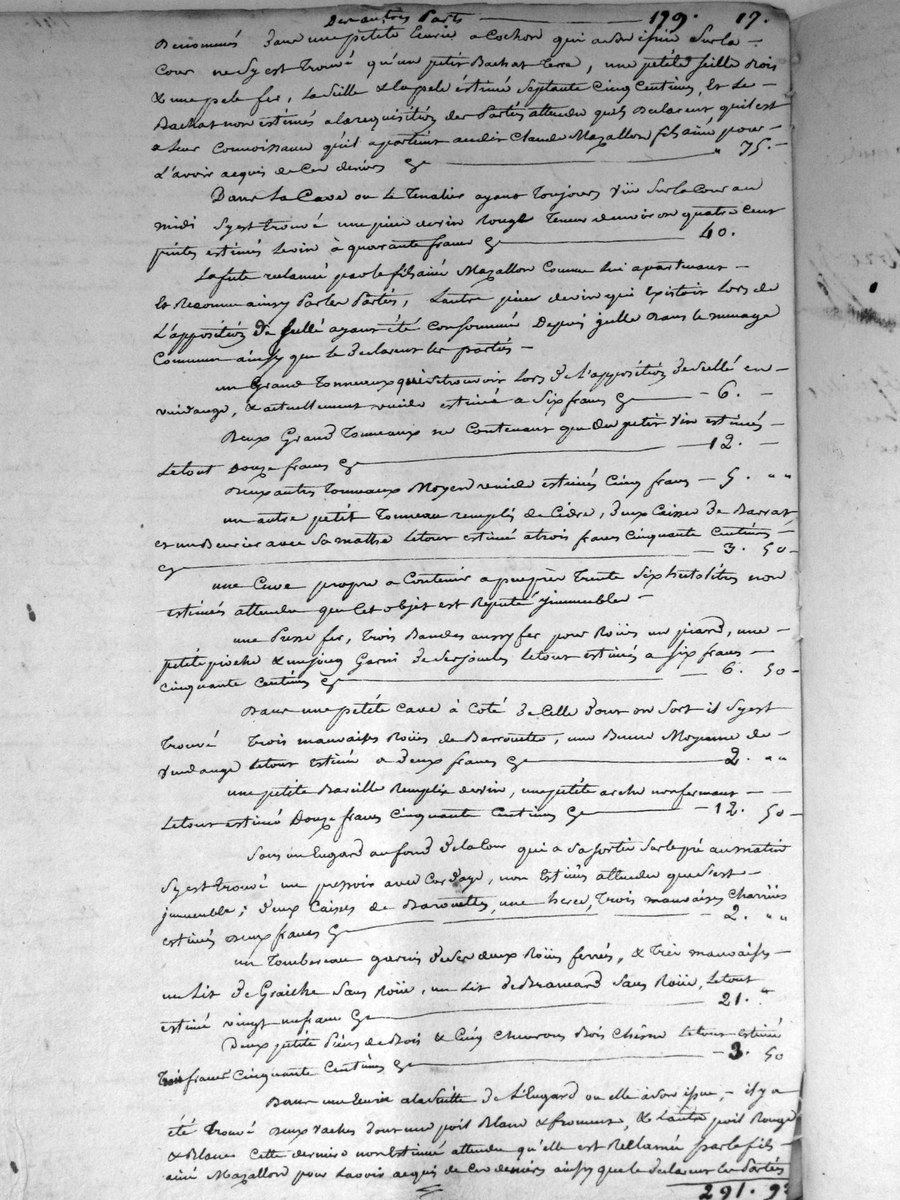 Des autres Parts ——— 179. 17.
Dans une petite Ecurie a Cochon qui a son issue Sur la
Cour ne Sy est Trouvé qu'un petit Bachat terre, une petite Seille bois
& une pele fer, la Seille & la pele estimé Septante Cinq Centimes, Et le
Bachat non estimés a la requisition des Parties attendu quils declarent qu'il est
a leur Connoissance qu'il apartient audit Claude Mazallon fils ainé pour
l'avoir acquis de Ces deniers ——— " 75.
Dans la Cave ou le Tenalier ayant Toujours vüe Sur la Cour au
midi Sy est trouvé une piece de vin Rouge Teneur denviron quatre Cent
pintes estimés le vin à quarante francs ——— 40.
La fute reclamé par le fils ainé Mazallon Comme lui apartenant
Et Reconnu ainsy Par les Parties, Lautre piece de vin qui Existoit Lors de
L'apposition de Scellé ayant été Consommée Depuis dans le menage
Commun ainsy que le declarent les parties
un Grand Tonneaux qui se trouvoit Lors de l'apposition de Scellé en
vuidange, & actuellement vuide estimé a Six francs ——— 6.
Deux Grand Tonneaux ne Contenant que du petit vin estimés
Le tout Douze francs ——— 12.
Deux autres Tonneaux Moyen vuide estimés Cinq francs — 5. " "
un autre petit Tonneau remplis de Cidre, deux Caisse de Barrat
et un Beurier avec Sa mathe Le tout estimé a trois francs Cinquante Centimes
——— 3. 50
une Cuve propre a Contenir a peu près Trente Six hectolitres non
estimés attendu que Cet objet est Reputé ymmeubler
une Presse fer, Trois Bandes aussy fer pour Roües un picard, une
petite pioche & un joug Garni de Ses joucles Le tout estimés a Six francs
Cinquante Centimes ——— 6. 50
Dans une petite Cave à Coté de Celle dont on Sort il Sy est
Trouvé Trois mauvaises Roües de Barrouette, une Benne Moyenne de
Vendange Le tout Estimé a deux francs ——— 2. " "
une petite Bareille Remplie de vin, une petite arche non fermant
Le tout estimé Douze francs Cinquante Centimes ——— 12. 50
Sous un Eugard au fond de la Cour qui a Sa sortie Sur le pré au matin
Sy est trouvé un pressoir avec Cordage, non Estimés attendu que S'est
jmmeuble; deux Caisses de Barouettes, une herce, Trois mauvaises Charües
estimés deux francs ——— 2. " "
un Tombereau garnis de Ses deux Roües ferrés, & très mauvaises
un Lit de Sans Roüe, un Lit de Brancard Sans Roüe, Le tout
estimé vingt un franc ——— 21. "
Deux petite Pièces de Bois & Cinq Chevrons Bois Chêne Le tout estimé
Trois francs Cinquante Centimes ——— 3. 50
Dans une Ecurie a la Suitte de L'Eugard ou elle a son issue, il y a
été Trouvé deux vaches dont une poil Blanc & froment, & Lautre poil Rouge
& Blanc Cette derniere non Estimée attendu qu'elle est Reclamée par le fils
ainé Mazallon pour Lavoir acquis de Ces deniers ainsy que le declarent les Parties
291. 92